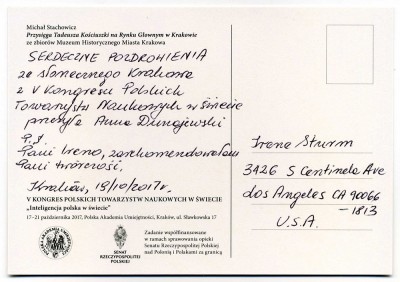 Michał Stachowicz
Przysięga Tadeusza Kościuszki na Rynku Głównym w Krakowie
ze zbiorów Muzeum Historycznego Miasta Krakowa
SERDECZNE POZDROWIENIA
ze słonecznego Krakowa
z V Kongresu Polskich
Towarzystw Naukowych w świecie
przesyła Anna Dunajewski
P.S.
Pani Ireno, zarekomendowałam
Pani twórczość,
Kraków, 19/10/2017r.
V KONGRES POLSKICH TOWARZYSTW NAUKOWYCH W ŚWIECIE
„Inteligencja polska w świecie”
17–21 października 2017, Polska Akademia Umiejętności, Kraków, ul. Sławkowska 17
SENAT
RZECZYPOSPOLITEJ
POLSKIEJ
Zadanie współfinansowane
w ramach sprawowania opieki
Senatu Rzeczypospolitej Polskiej
nad Polonią i Polakami za granicą
Irena Sturm
3426 S Centinela Ave
Los Angeles CA 90066
-1813
U.S.A.